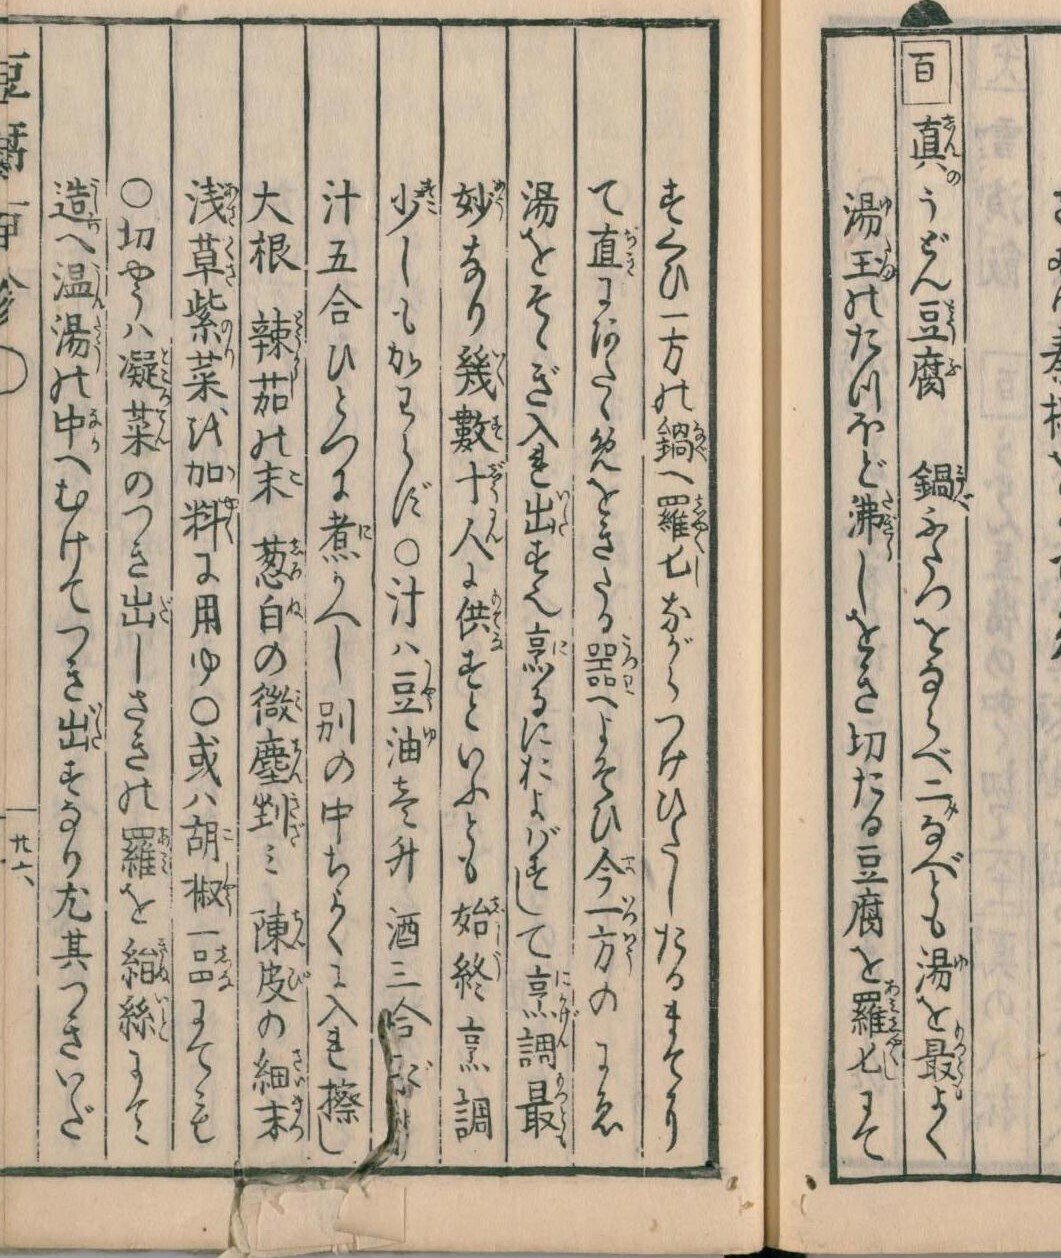 百 真のうどん豆腐 鍋ふたつをならべ二なべとも湯を最よく
湯玉のたつほど沸しをき切たる豆腐を羅匕にて
すくひ一方の鍋へ羅匕ながらつけひたしたるまてり
て直にあたゝめをきたる器へよそひ今一方の にゑ
湯をそゝぎ入れ出すべし烹るにおよばずして烹調最
妙なり幾數十人に供すといふとも始終烹調
少しもかわらず〇汁ハ豆油壱升 酒三合
汁五合ひとつに煮かへし別の中ちよくに入れ擦し
大根 辣茄の末 葱白の微塵剉ミ 陳皮の細末
浅草紫菜を加料に用ゆ〇或ハ胡椒一品にてもも
〇切やうハ凝菜のつき出しさきの羅を絹絲にて
造へ温湯の中へむけてつき出すなり尤其つきいだ
豆腐百珍
廿六